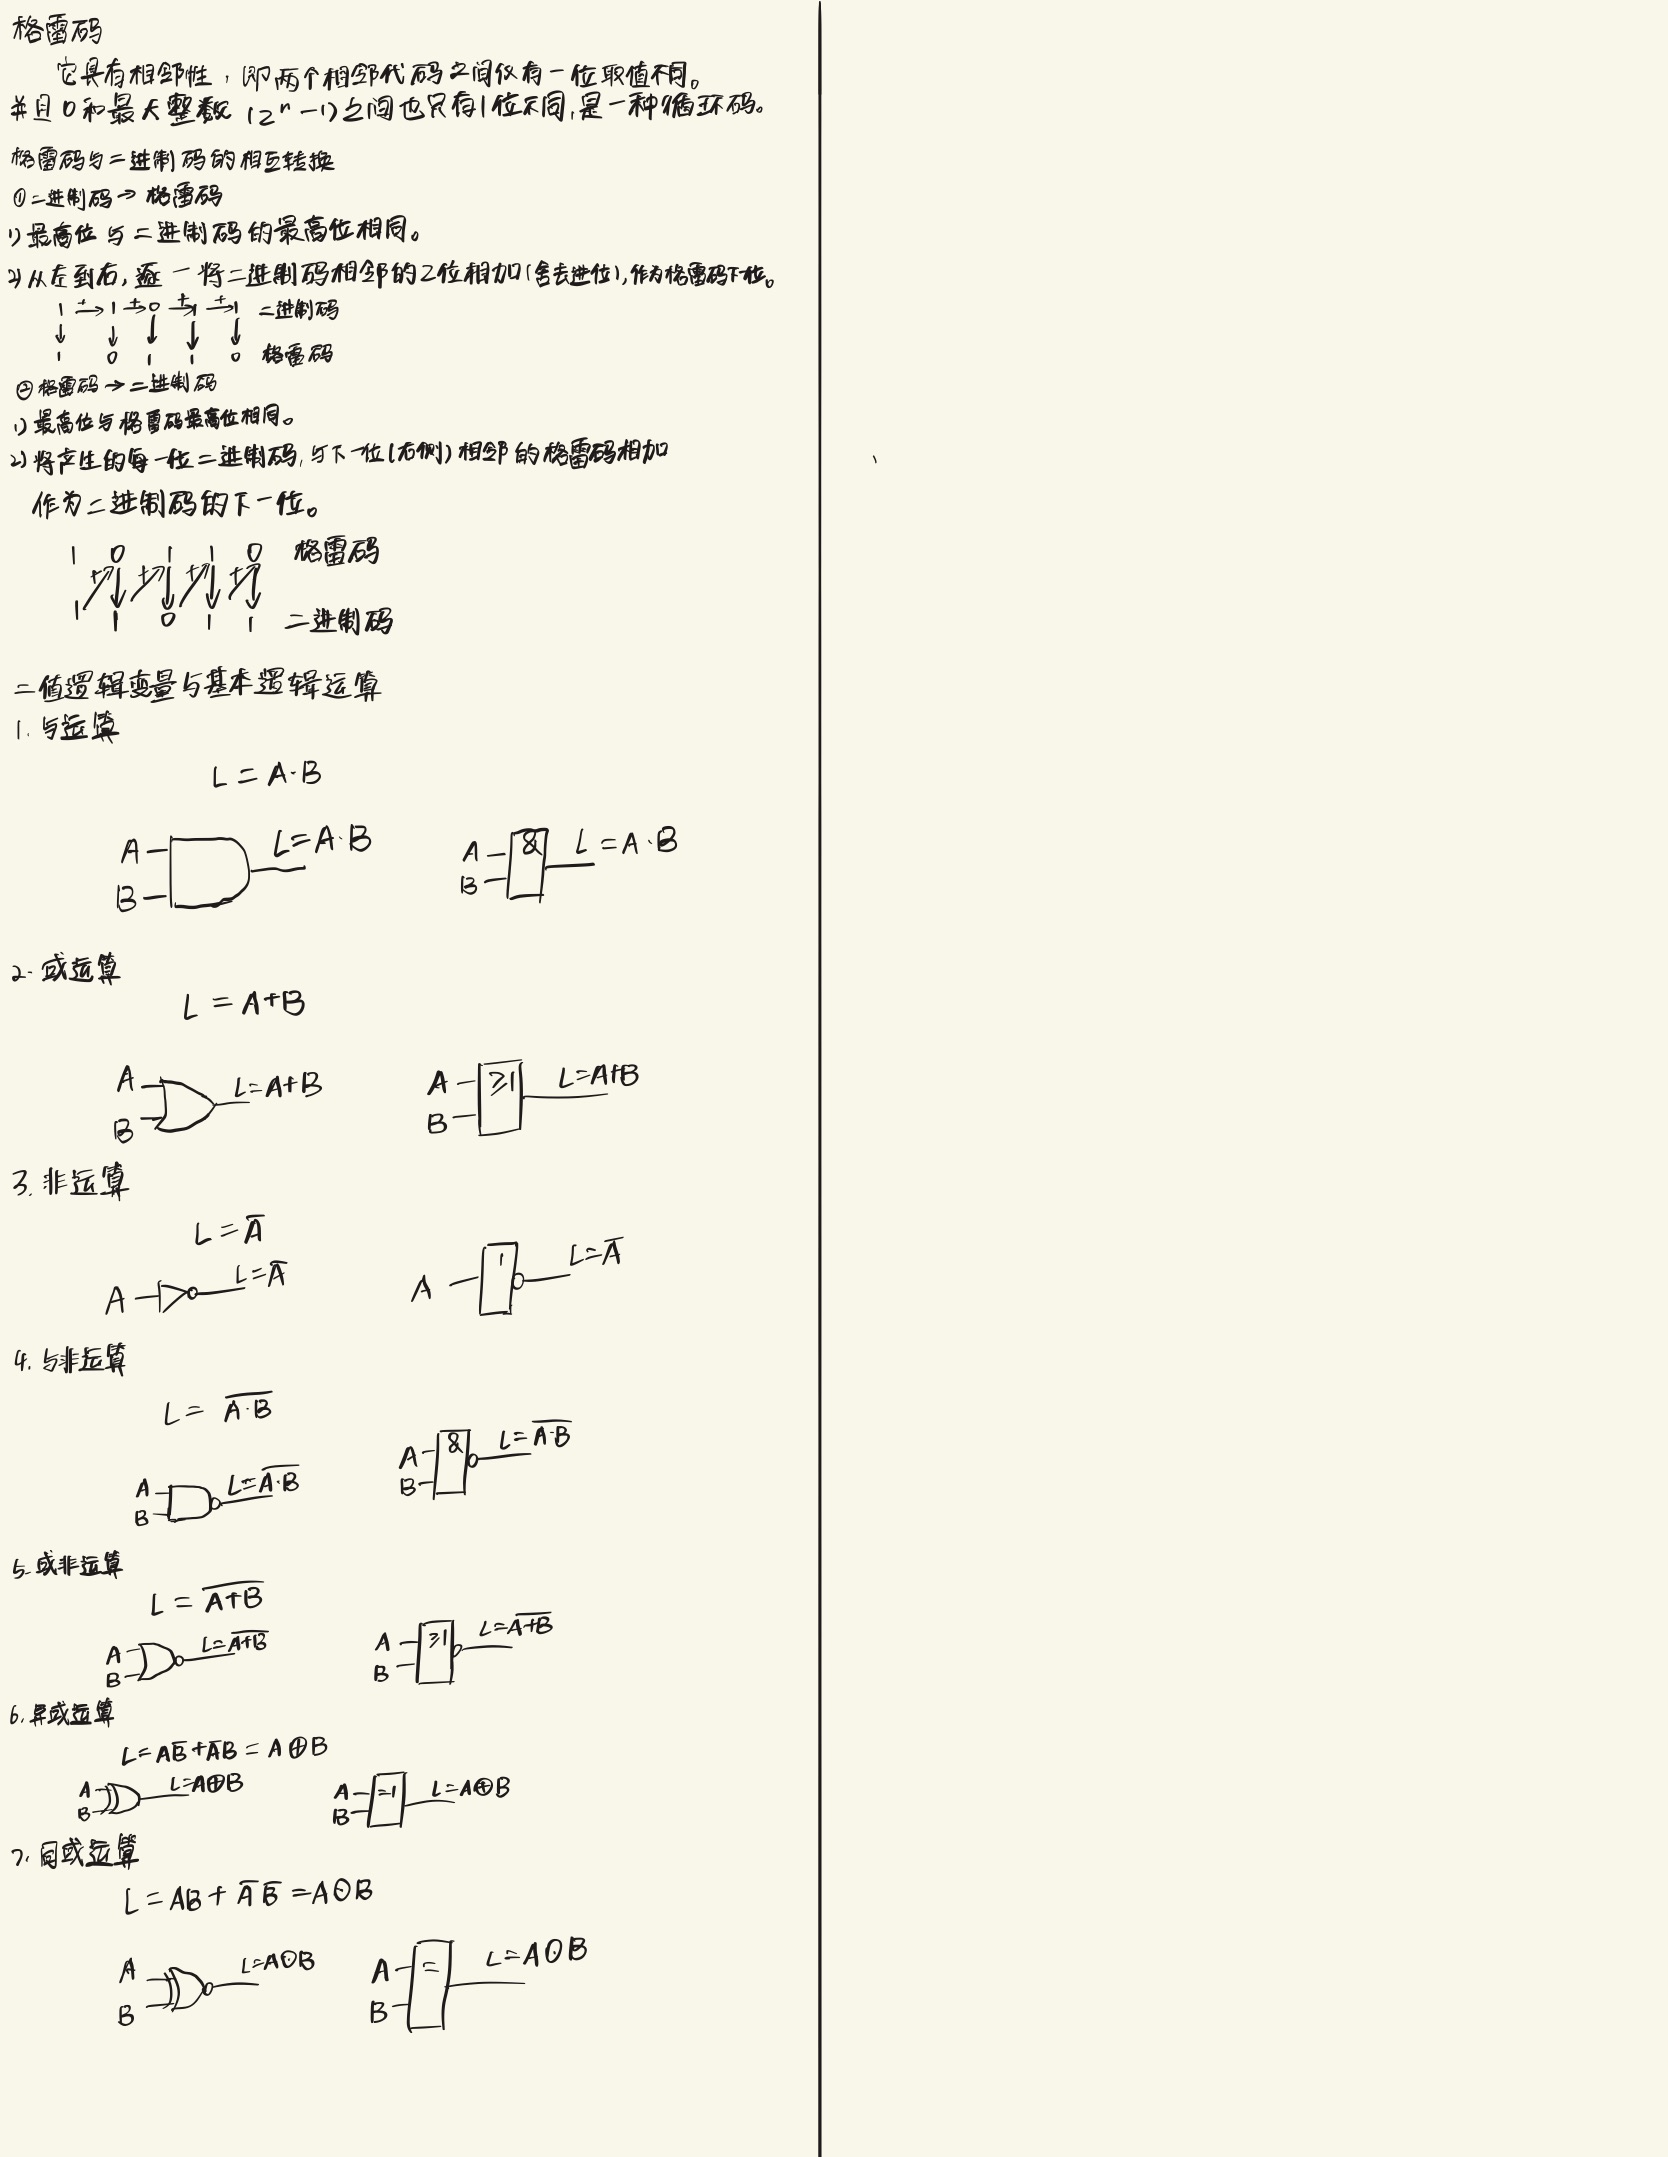 格雷码
它具有相邻性，即两个相邻代码之间仅有一位取值不同。
并且0和最大整数(2ⁿ-1)之间也只有1位不同,是一种循环码。
格雷码与二进制码的相互转换
①二进制码→格雷码
1)最高位与二进制码的最高位相同。
2)从左到右,逐一将二进制码相邻的2位相加(舍去进位),作为格雷码下一位。
1 + 1 + 0 + 1 + 1 二进制码
1 0 1 1 0 格雷码
②格雷码→二进制码
1)最高位与格雷码最高位相同。
2)将产生的每一位二进制码,与下一位(右侧)相邻的格雷码相加
作为二进制码的下一位。
1 0 1 1 0 格雷码
+ + + +
1 1 0 1 1 二进制码
二值逻辑变量与基本逻辑运算
1. 与运算
L = A·B
A B L=A·B A B & L=A·B
2. 或运算
L = A+B
A B L=A+B A B ≥1 L=A+B
3. 非运算
L = A̅
A L=A̅ A 1 L=A̅
4. 与非运算
L = A̅·̅B̅
A B L=A̅·̅B̅ A B & L=A̅·̅B̅
5. 或非运算
L = A̅+̅B̅
A B L=A̅+̅B̅ A B ≥1 L=A̅+̅B̅
6. 异或运算
L=AB̅+A̅B = A⊕B
A B L=A⊕B A B =1 L=A⊕B
7. 同或运算
L = AB + A̅ B̅ = A⊙B
A B L=A⊙B A B = L=A⊙B